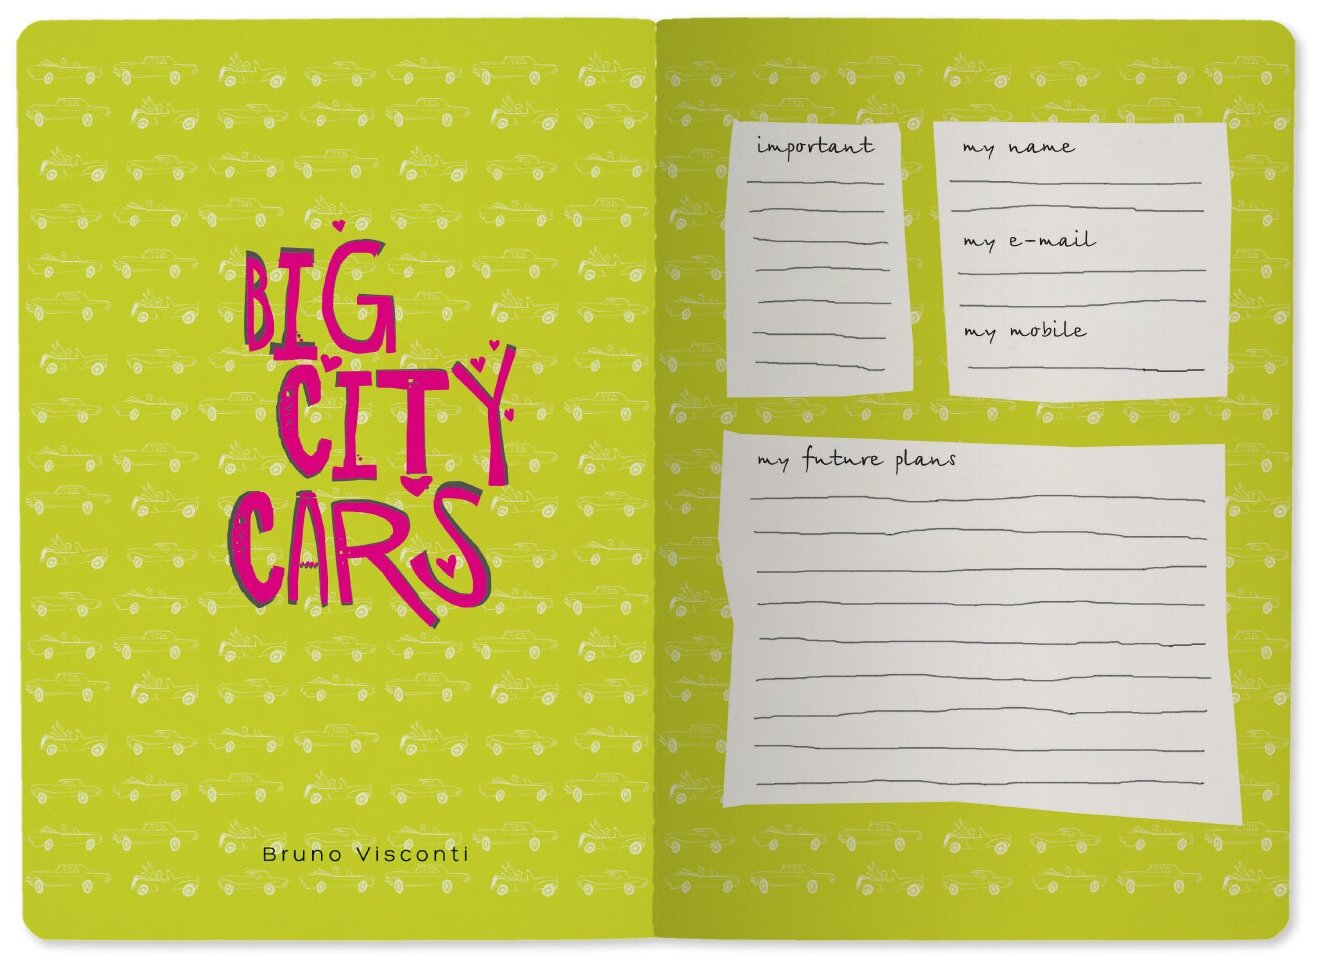 BIG
CITY
CARS
Bruno Visconti
important
my name
my e-mail
my mobile
my future plans